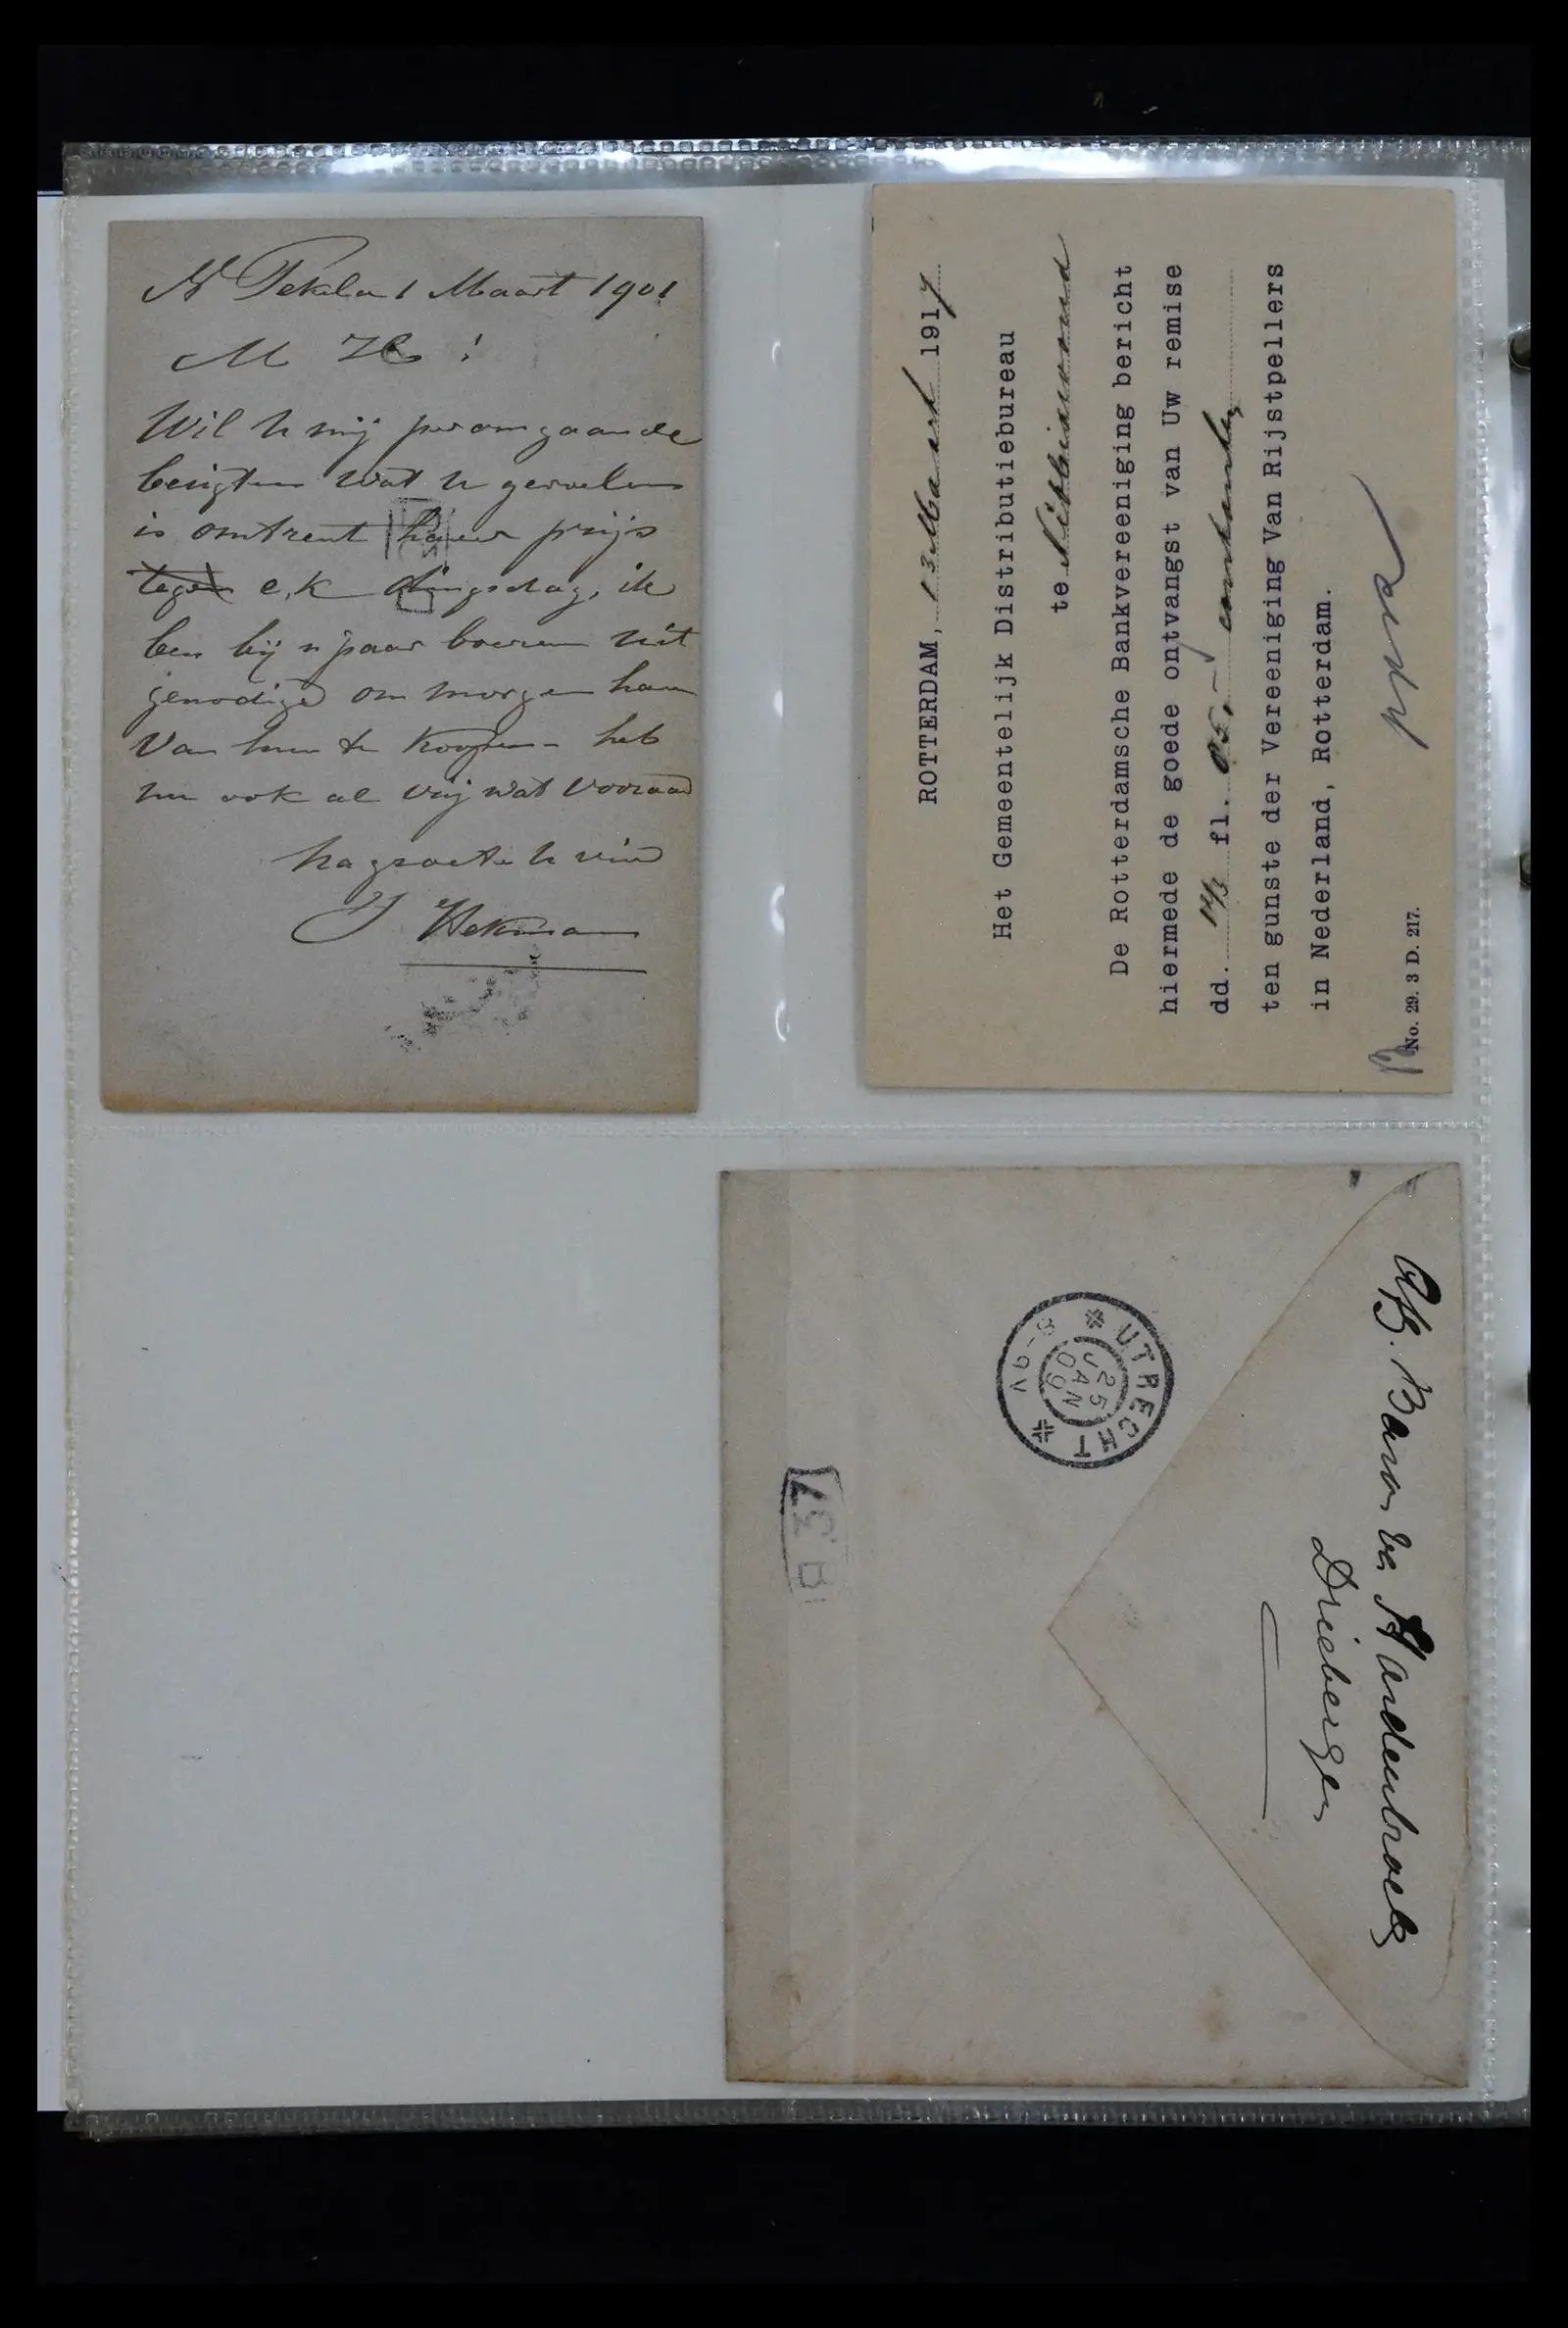 N Pekela 1 Maart 1901
M H !
Wil U mij per omgaande
berigten wat U gevoelen
is omtrent haver prijs
tegen e.k dingsdag, ik
ben bij n paar boeren uit
genodigd om morgen haver
van hun te koopen - heb
nu ook al vrij wat vooraad
Na groete U vriend
J Hekman
ROTTERDAM, 13 Maart 1917
Het Gemeentelijk Distributiebureau
te
De Rotterdamsche Bankvereeniging bericht
hiermede de goede ontvangst van Uw remise
dd. fl.
ten gunste der Vereeniging Van Rijstpellers
in Nederland, Rotterdam.
No. 29. 3 D. 217.
Afz. Baron van Hardenbroek
Driebergen
UTRECHT
25 JAN 09
8-9V